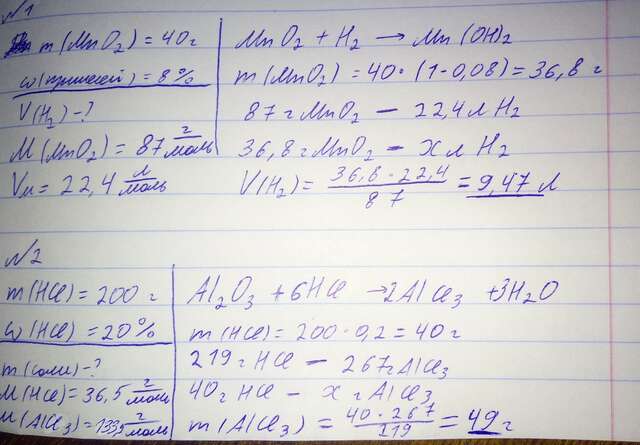 N1
m(MnO₂) = 40 г
w(примесей) = 8%
V(H₂) - ?
M(MnO₂) = 87 г/моль
Vм = 22,4 л/моль
MnO₂ + H₂ → Mn(OH)₂
m(MnO₂) = 40 · (1 - 0,08) = 36,8 г
87 г MnO₂ — 22,4 л H₂
36,8 г MnO₂ — x л H₂
V(H₂) = 36,8 · 22,4 / 87 = 9,47 л
N2
m(HCl) = 200 г
w(HCl) = 20%
m(соли) - ?
M(HCl) = 36,5 г/моль
M(AlCl₃) = 133,5 г/моль
Al₂O₃ + 6HCl → 2AlCl₃ + 3H₂O
m(HCl) = 200 · 0,2 = 40 г
219 г HCl — 267 г AlCl₃
40 г HCl — x г AlCl₃
m(AlCl₃) = 40 · 267 / 219 = 49 г